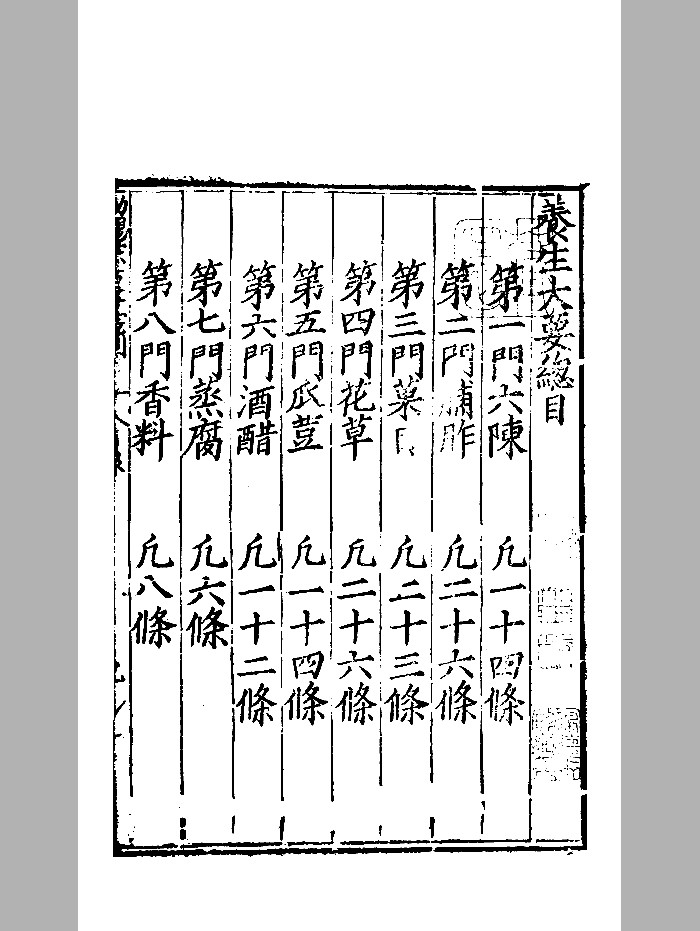 養生大要總目
第一門六陳 凢一十四條
第二門脯鮓 凢二十六條
第三門菓 凢二十三條
第四門花草 凢二十六條
第五門瓜荳 凢一十四條
第六門酒醋 凢一十二條
第七門蒸腐 凢六條
第八門香料 凢八條